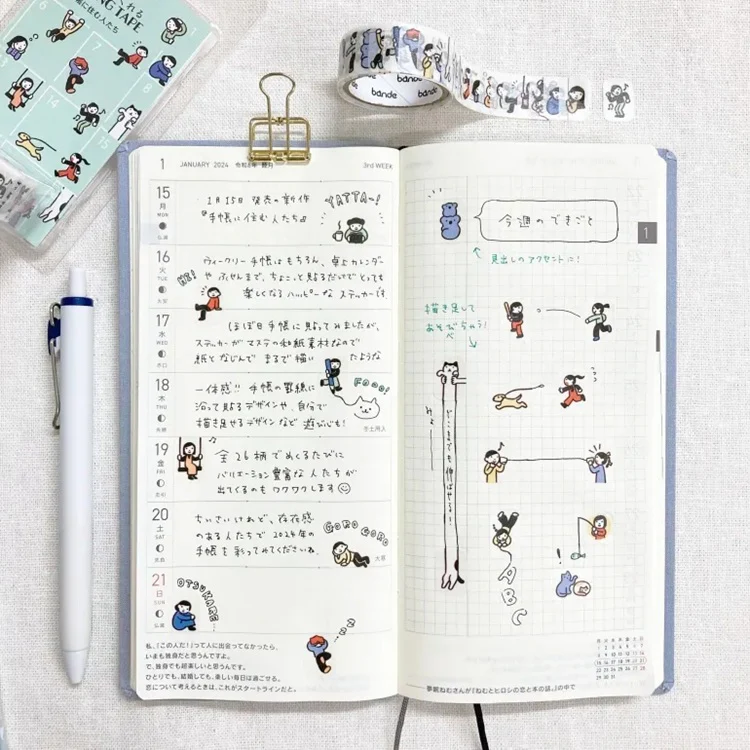 NG TAPE
に住む人たち
6
7
8
14
15
bande bande
1 JANUARY 2024 令和6年 睦月 3rd WEEK
15
月
MON
仏滅
1月15日 発売の新作
『手帳に住む人たち』
YATTA〜!
16
火
TUE
大安
HI!
ウィークリー手帳はもちろん、卓上カレンダー
や ふせんまで、ちょこっと貼るだけでとっても
楽しくなる ハッピーな ステッカーです
17
水
WED
赤口
ほぼ日手帳に貼ってみましたが、
ステッカーが マステの和紙素材なので
紙となじんで まるで描い たような
18
木
THU
先勝
一体感!! 手帳の罫線に
沿って貼るデザインや、自分で
描き足せるデザインなど 遊び心も!
FOOO!
冬土用入
19
金
FRI
友引
全26柄で めくるたびに
バリエーション豊富な 人たちが
出てくるのも ワクワクします
20
土
SAT
先負
ちいさいけれど、存在感
のある人たちで 2024年の
手帳を彩ってみてくださいね。
GORO GORO
大寒
21
日
SUN
仏滅
OTSUKARE...
zzz
私、「この人だ!」って人に出会ってなかったら、
いまも独身だと思うんですよ。
で、独身でも超楽しいと思うんです。
ひとりでも、結婚しても、楽しい毎日は過ごせる。
恋について考えるときは、これがスタートラインだと。
今週のできごと
1
↑見出しのアクセントに!
描き足して
あそびちゃう!
どこまでも伸ばせる!
ABC
夢眠ねむさんが『ねむとヒロシの恋と本の話。』の中で